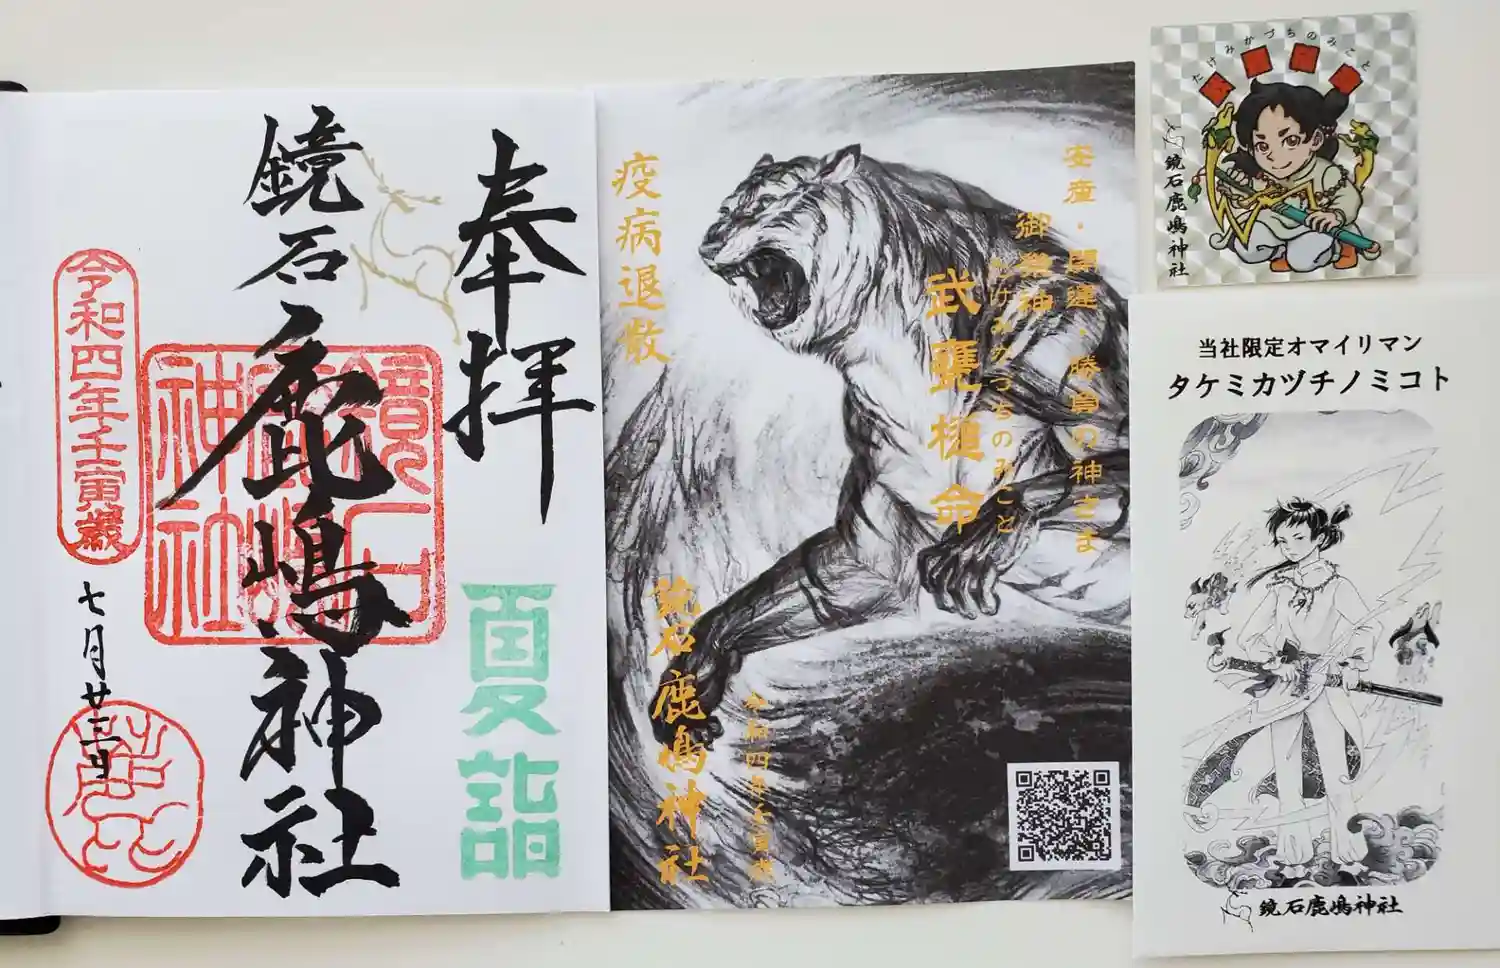 奉拝
夏詣
鏡石鹿嶋神社
鏡石鹿嶋神社
令和四年壬寅歳
七月廿三日
鹿
安産・開運・勝負の神さま
御祭神
たけみかつちのみこと
武甕槌命
疫病退散
鏡石鹿嶋神社
令和四年壬寅歳
たけみかづちのみこと
鏡石鹿嶋神社
当社限定オマイリマン
タケミカヅチノミコト
鏡石鹿嶋神社